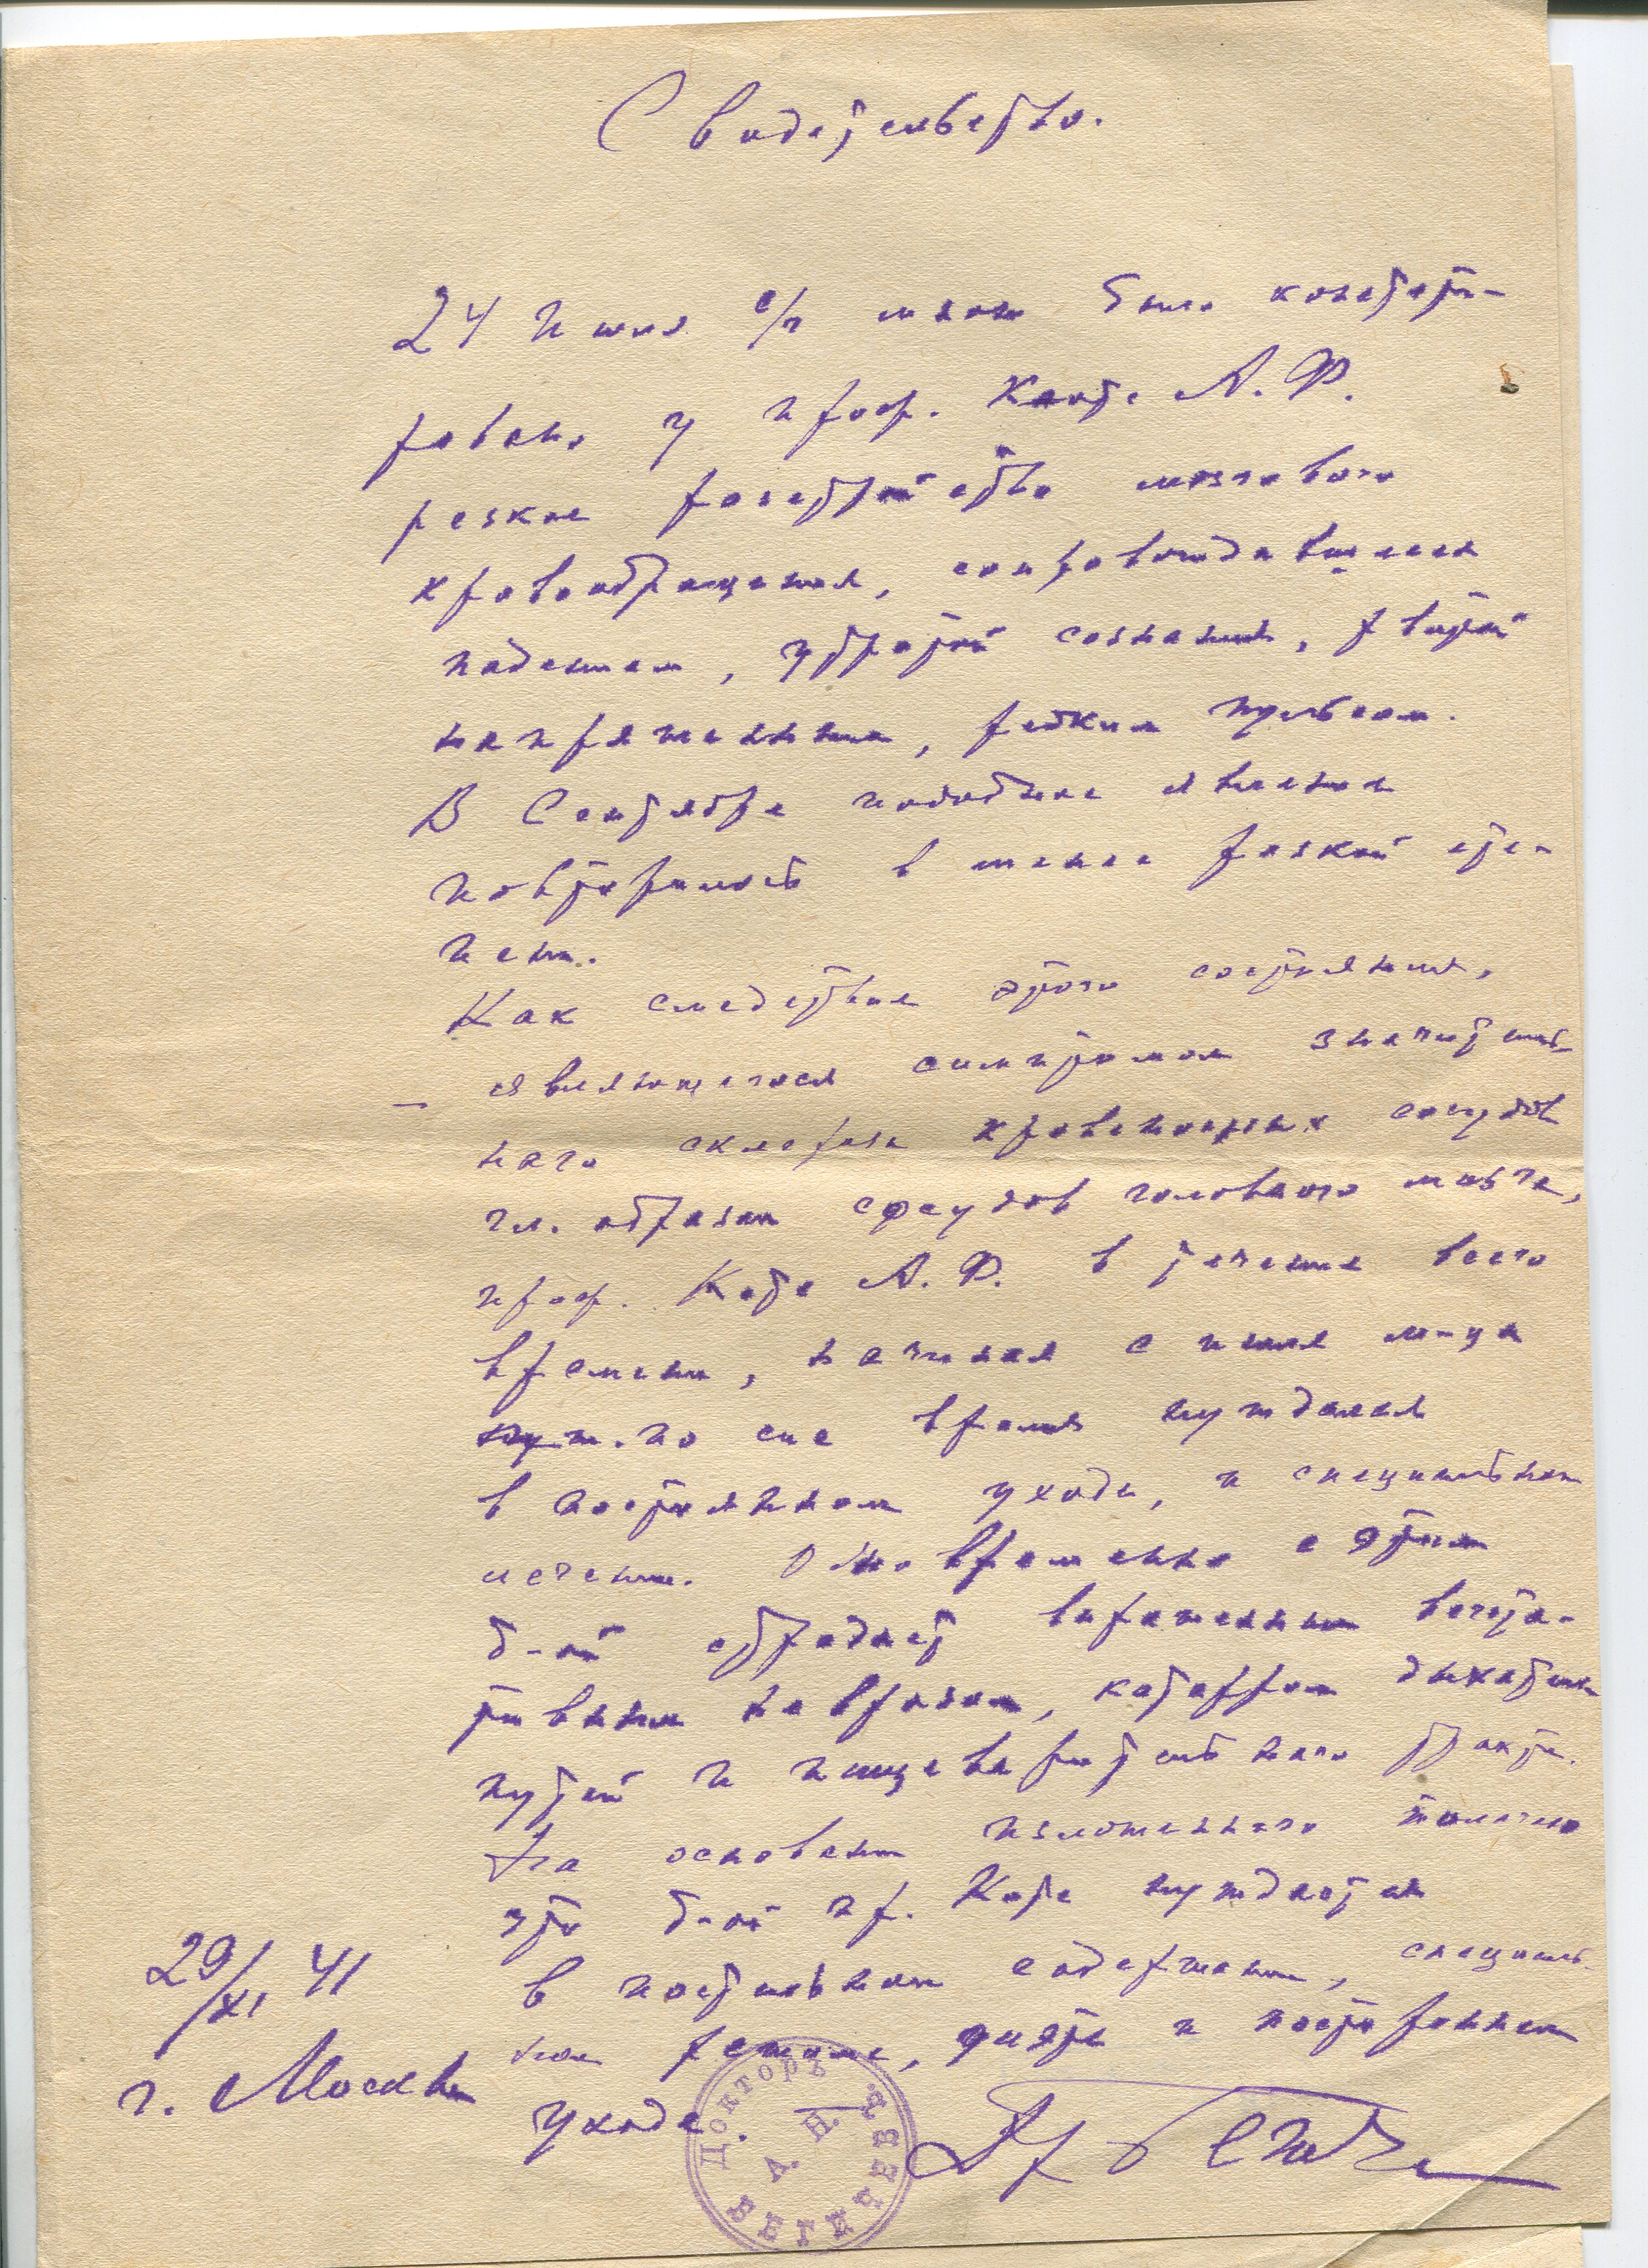 Свидетельство.
24 Июля с/г мною было констати-
ровано у проф. Котс А. Ф.
резкое расстройство мозгового
кровообращения, сопровождавшееся
падением, утратой сознания, рвотой
напряженным, редким пульсом.
В Сентябре подобное явление
повторилось в менее резкой сте-
пени.
Как следствие этого состояния,
являющегося симптомом значитель-
ного склероза кровеносных сосудов
гл. образом сосудов головного мозга,
проф. Котс А. Ф. в течение всего
времени, начиная с июля м-ца
по сие время нуждался
в постоянном уходе, и специальном
лечении. Одновременно с этим
б-ой страдает выраженным вегета-
тивным неврозом, катарром дыхатель.
путей и пищеварительного тракта.
На основании изложенного полагаю
что б-ой пр. Котс нуждается
в постельном содержании, специаль-
ном режиме, диэте и постороннем
уходе.
29/XI 41
г. Москва
Др Бегич
Докторъ А. Н. Бегичевъ